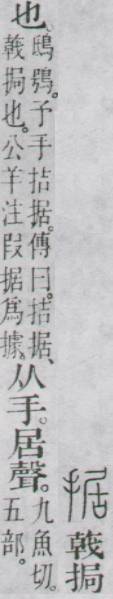 据戟挶
也。鴟鴞。予手拮据。傳曰。拮据、戟挶也。公羊注叚据爲據。从手。居聲。九魚切。五部。